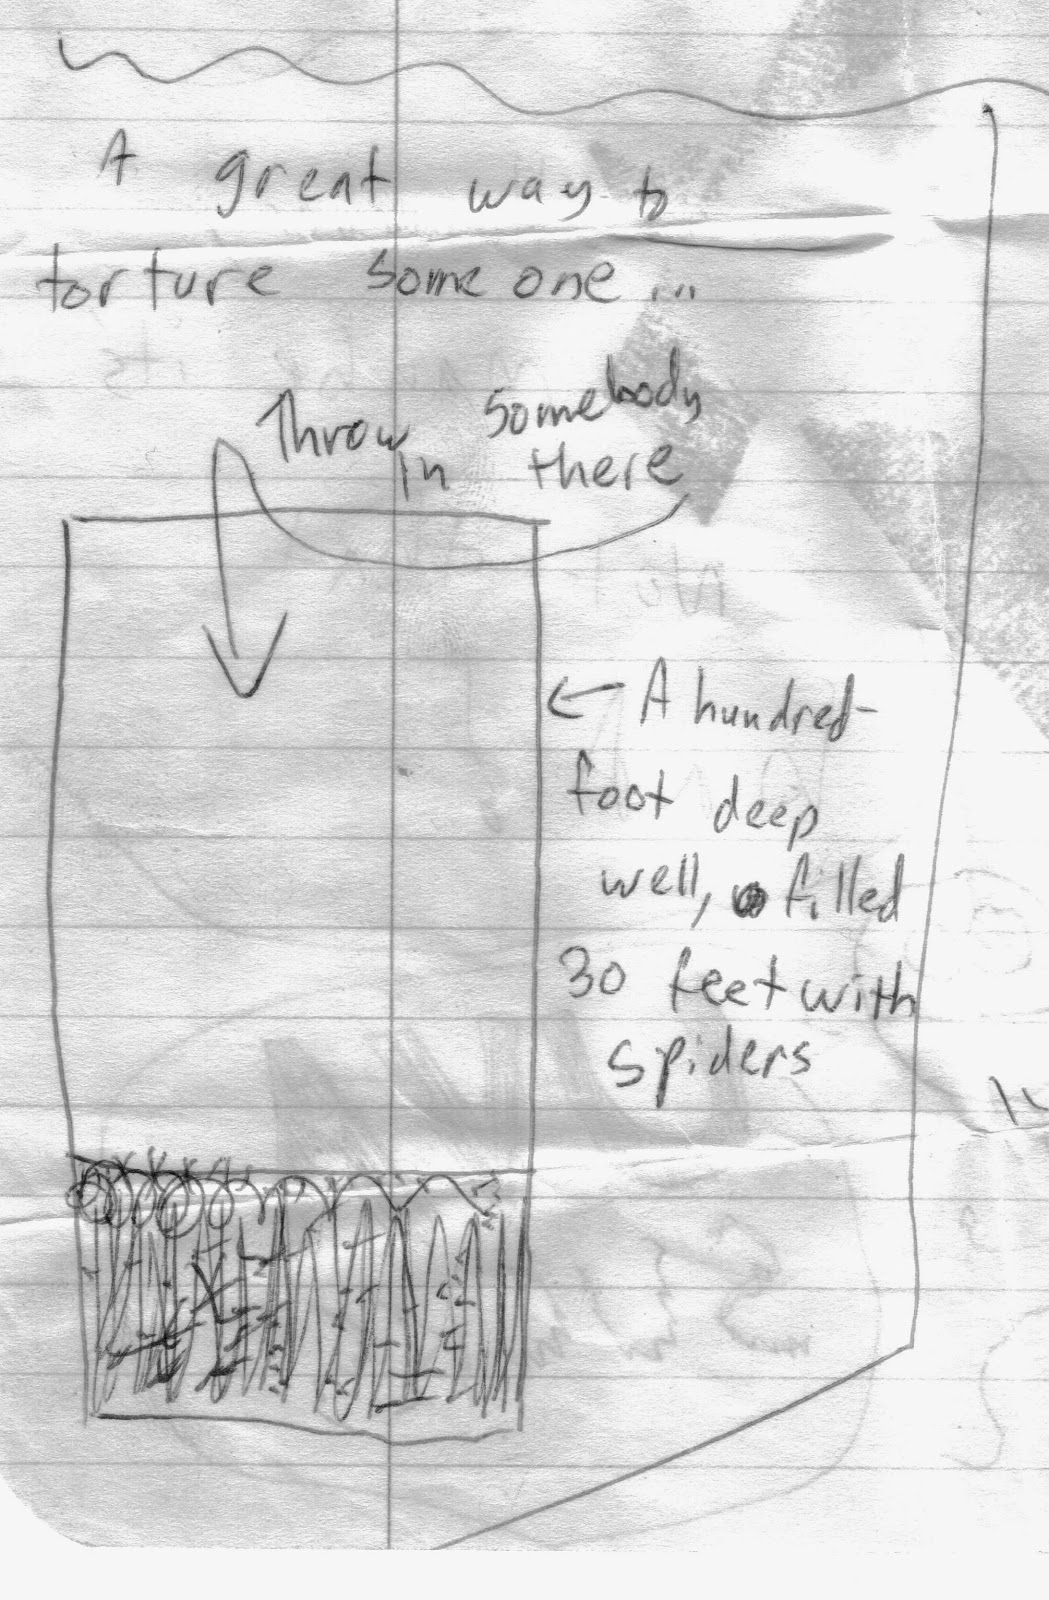 A great way to
torture someone...
Throw somebody
in there
← A hundred-
foot deep
well, filled
30 feet with
spiders